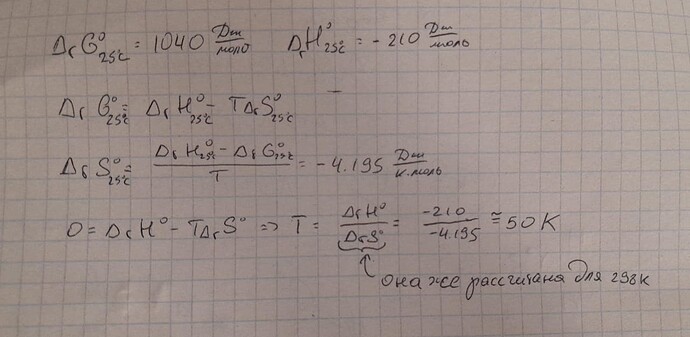 ΔrG°25°C = 1040 Дж/моль ΔrH°25°C = -210 Дж/моль
ΔrG°25°C = ΔrH°25°C - TΔrS°25°C
ΔrS°25°C = (ΔrH°25°C - ΔrG°25°C)/T = -4.195 Дж/К·моль
0 = ΔrH° - TΔrS° => T = ΔrH°/ΔrS° = -210/-4.195 ≅ 50K
она же рассчитана для 298К